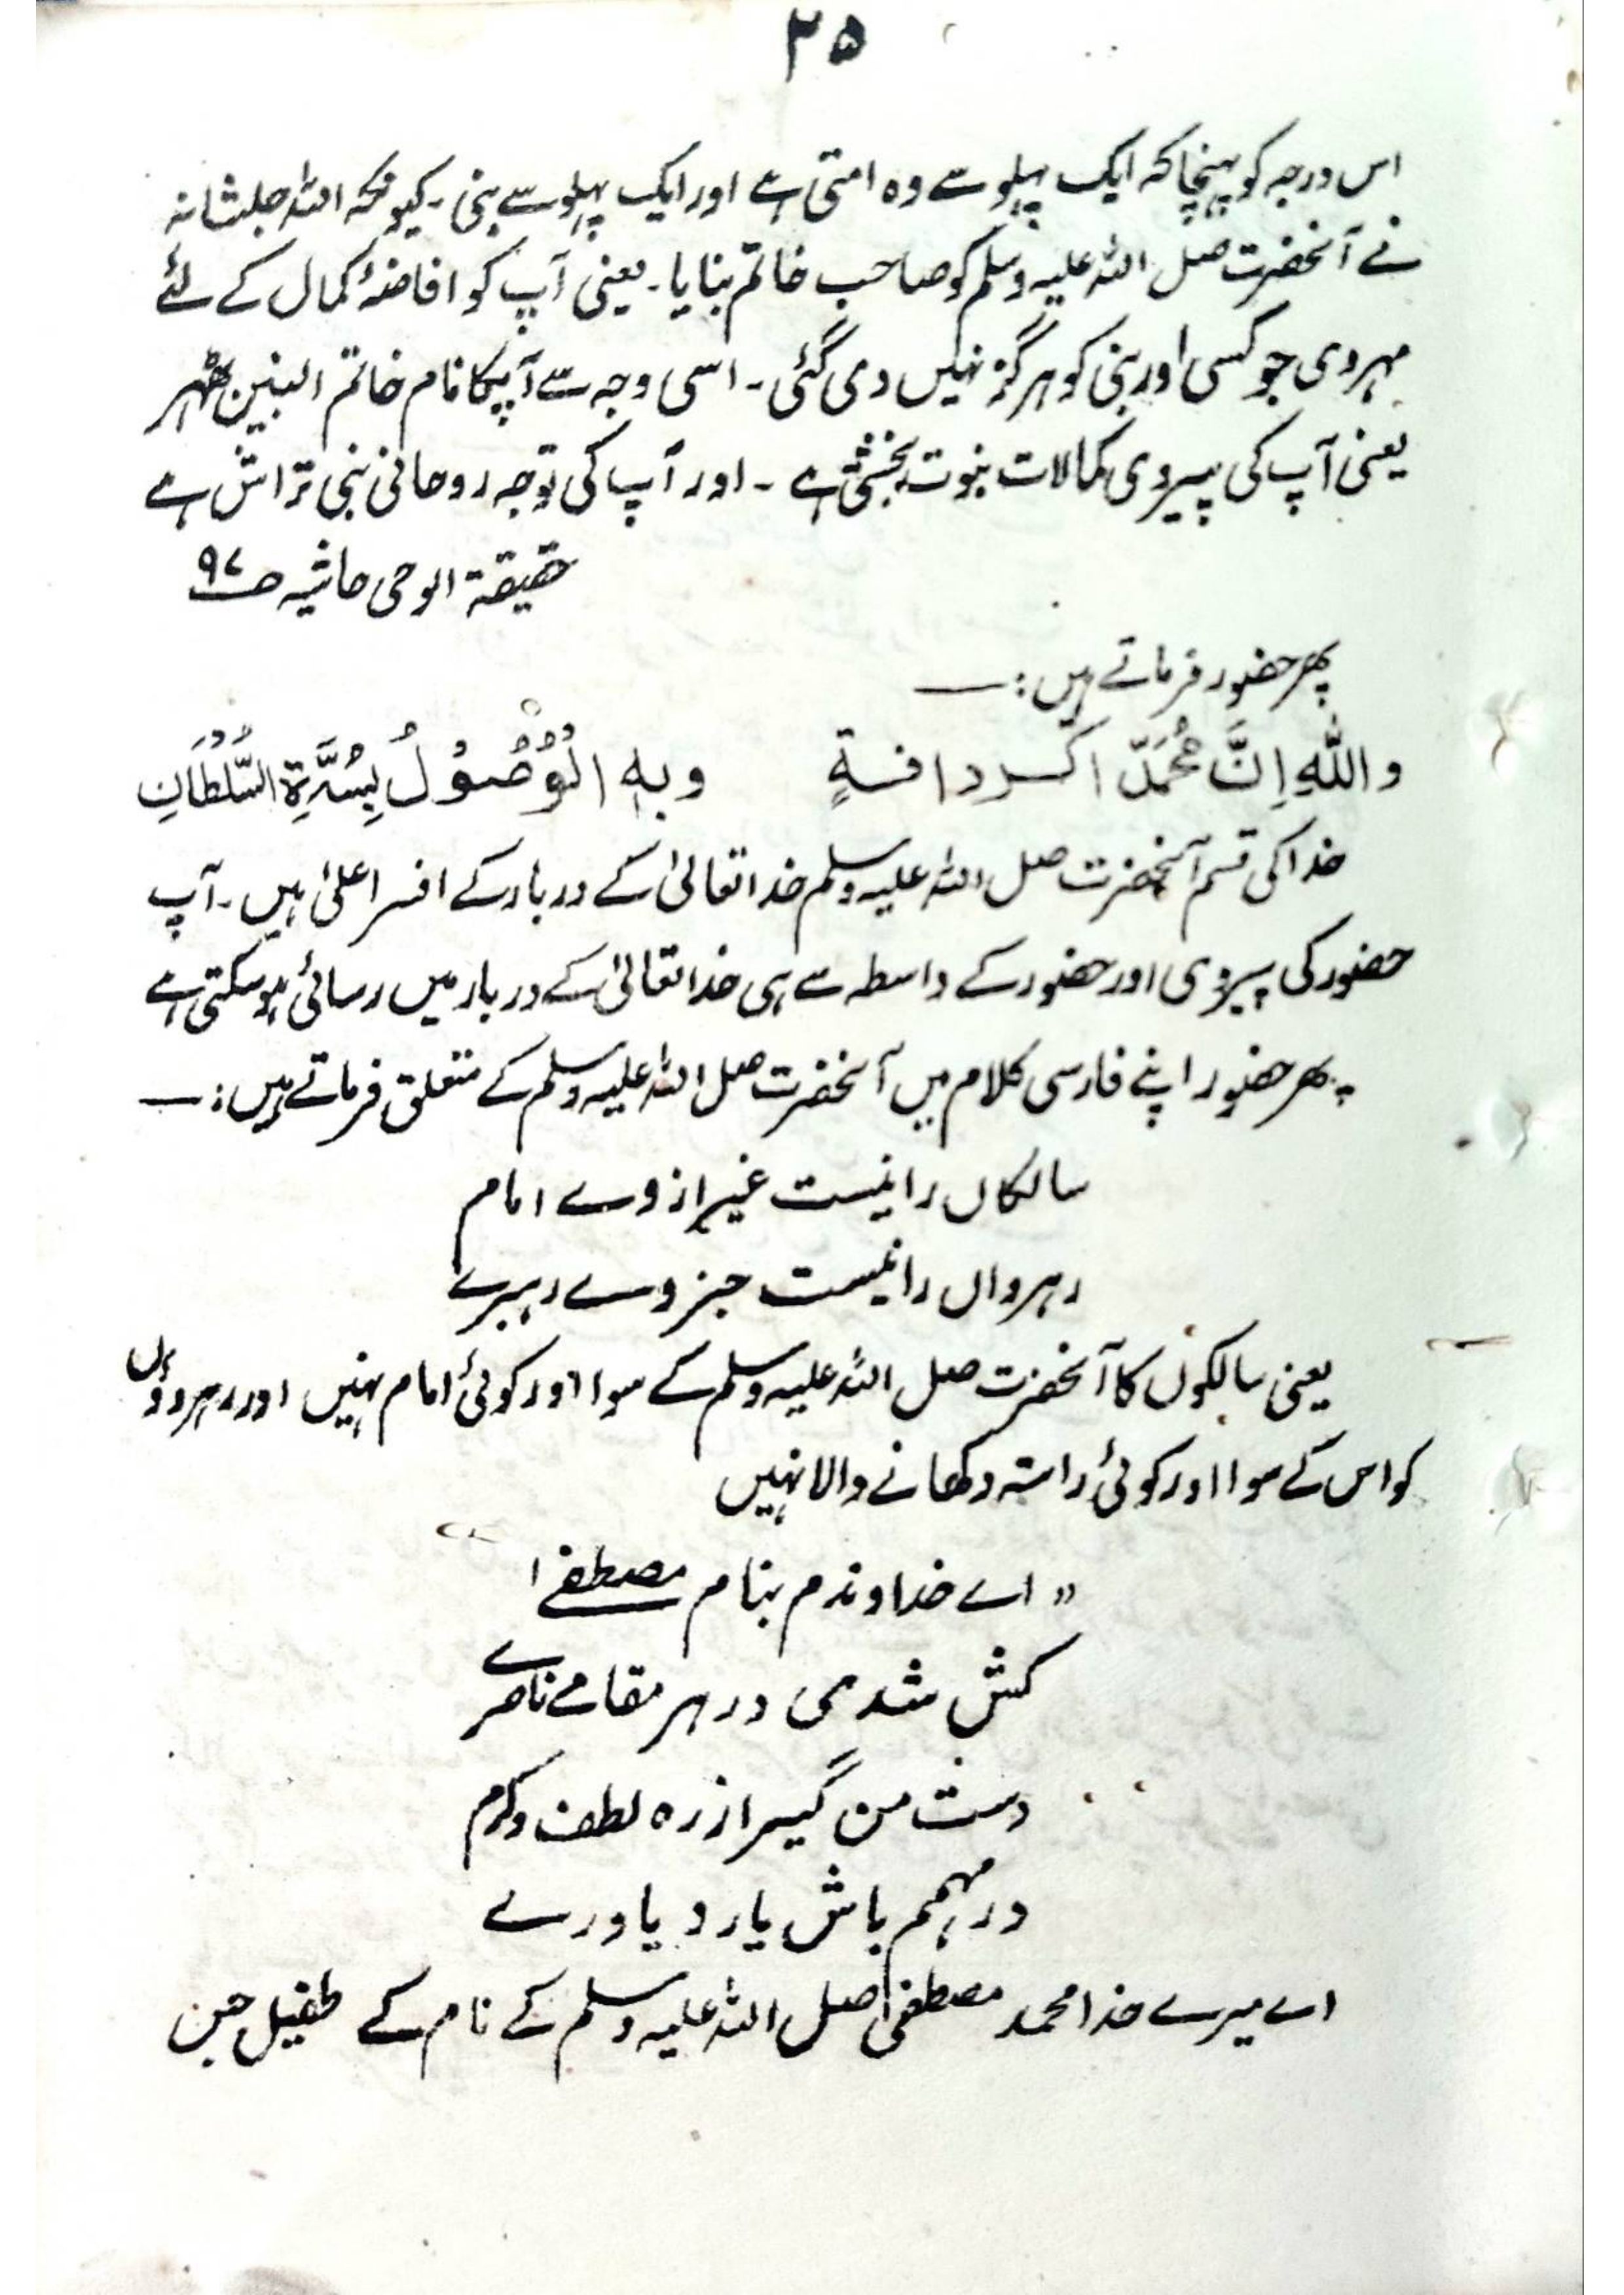 ۲۵
اس درجہ کو پہنچا کہ ایک پہلو سے وہ امتی ہے اور ایک پہلو سے نبی ۔ کیونکہ اللہ جلشانہ
نے آنحضرت صلی اللہ علیہ وسلم کو صاحب خاتم بنایا ۔ یعنی آپ کو افاضۂ کمال کے لئے
مہر دی جو کسی اور نبی کو ہرگز نہیں دی گئی ۔ اسی وجہ سے آپکا نام خاتم النبین ٹھہر
یعنی آپ کی پیروی کمالات نبوت بخشتی ہے ۔ اور آپ کی توجہ روحانی نبی تراش ہے
حقیقۃ الوحی حاشیہ صـ ۹۷
پھر حضور فرماتے ہیں :—
واللّٰهِ اِنَّ مُحَمَّدً اکَسرد افسةٍ وبه الْوُصُوْلُ بِسُدَّةِ السُّلْطَانِ
خدا کی قسم آنحضرت صلی اللہ علیہ وسلم خدا تعالیٰ کے دربار کے افسر اعلیٰ ہیں ۔ آپ
حضور کی پیروی اور حضور کے واسطہ سے ہی خدا تعالیٰ کے دربار میں رسائی ہو سکتی ہے
پھر حضور اپنے فارسی کلام میں آنحضرت صلی اللہ علیہ وسلم کے متعلق فرماتے ہیں :—
سالکاں را نیست غیر از وے امام
رہرواں را نیست جز وے رہبرے
یعنی سالکوں کا آنحضرت صلی اللہ علیہ وسلم کے سوا اور کوئی امام نہیں اور رہرووں
کو اس کے سوا اور کوئی راستہ دکھانے والا نہیں
" اے خداوندم بنام مصطفےٰ ا
کش شدی در ہر مقامے ناصرے
دست من گیر از رہ لطف وکرم
در مہمم باش یار و یاورے
اے میرے خدا محمد مصطفیٰ صلی اللہ علیہ وسلم کے نام کے طفیل جن